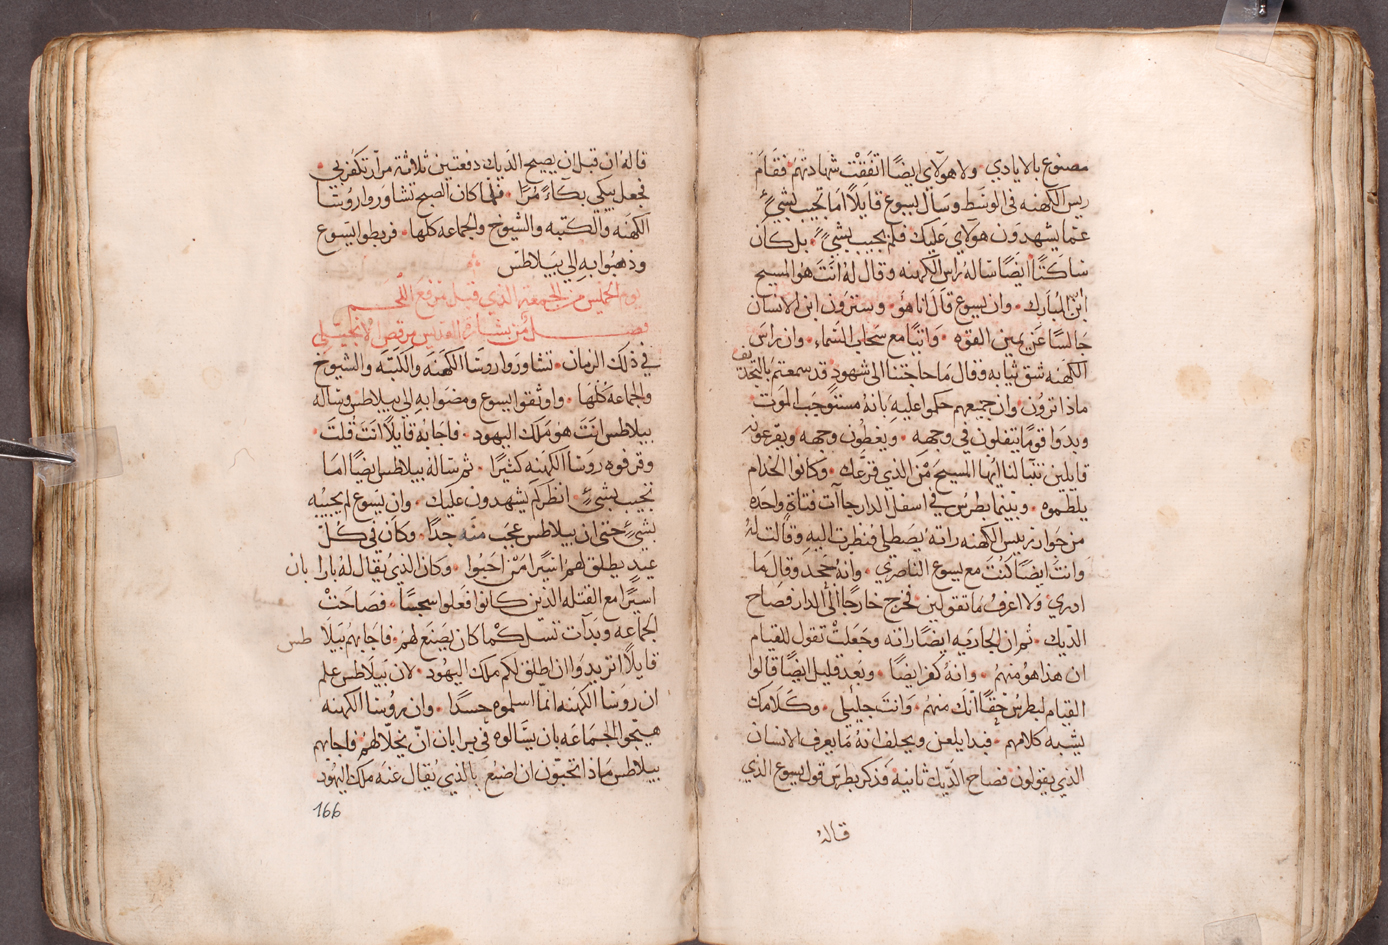 مصنوع بالايادي ولا هولاي ايضًا اتفقت شهادتهم فقام
ريس الكهنه في الوسط وسال يسوع قايلًا اما تجيب بشيءٍ
عما يشهدون هولاي عليك فلم يجيب بشيءٍ بل كان
ساكتًا ايضًا ساله راس الكهنه وقال له انت هو المسيح
ابن المبارك وان يسوع قال انا هو وسترون ابن الانسان
جالسًا عن يمين القوه واتيًا مع سحاب السماء وان راس
الكهنه شق ثيابه وقال ما حاجتنا الى شهود قد سمعتم بالتجديف
ماذا ترون وان جميعهم حكموا عليه بانه مستوجب الموت
وبدوا قومًا يتفلون في وجهه ويغطون وجهه ويقرعونه
قايلين تنبا لنا ايها المسيح من الذي قرعك وكانوا الخدام
يلطموه وبينما بطرس في اسفل الدار جاات فتاة واحده
من جوار ريس الكهنه راته يصطلي فنظرت اليه وقالت له
وانت ايضًا كنت مع يسوع الناصري وانه جحد وقال ما
ادري ولا اعرف ما تقولين فخرج خارجًا الى الدار فصاح
الديك ثم ان الجاريه ايضًا راته وجعلت تقول للقيام
ان هذا هو منهم وانه كفر ايضًا وبعد قليل ايضًا قالوا
القيام لبطرس حقًا انك منهم وانت جليلي وكلامك
يشبه كلامهم فبدا يلعن ويحلف انه ما يعرف الانسان
الذي يقولون فصاح الديك ثانيه فذكر بطرس قول يسوع الذي
قاله
قاله ان قبل ان يصيح الديك دفعتين ثلاثة مرار تكفر بي
فجعل يبكي بكاءً مُرًا فلما كان الصبح تشاوروا روسا
الكهنه والكتبه والشيوخ والجماعه كلها فربطوا يسوع
وذهبوا به الي بيلاطس
يوم الخميس من الجمعة الذي قبل مرفع اللحم
فصل من بشارة القديس مرقص الانجيلي
في ذلك الزمان تشاوروا روسا الكهنه والكتبه والشيوخ
والجماعه كلها واوثقوا يسوع ومضوا به الي بيلاطس وساله
بيلاطس انت هو ملك اليهود فاجابه قايلًا انت قلت
وقرفوه روسا الكهنه كثيرًا ثم ساله بيلاطس ايضًا اما
تجيب بشيءٍ انظر كم يشهدون عليك وان يسوع لم يجيبه
بشيءٍ حتى ان بيلاطس عجب منه جدًا وكان في كل
عيد يطلق لهم اسيرًا من احبوا وكان الذي يقال له بارابان
اسيرًا مع القتله الذين كانوا فعلوا سجسًا فصاحت
الجماعه وبدات تسل كما كان يصنع لهم فاجابهم بيلاطس
قايلًا اتريدوا ان اطلق لكم ملك اليهود لان بيلاطس علم
ان روسا الكهنه انما اسلموه حسدًا وان روسا الكهنه
هيجوا الجماعه بان يسالوه في برابان ان يخلا لهم فاجابهم
بيلاطس ماذا تحبون ان اصنع بالذي يقال عنه ملك اليهود
166